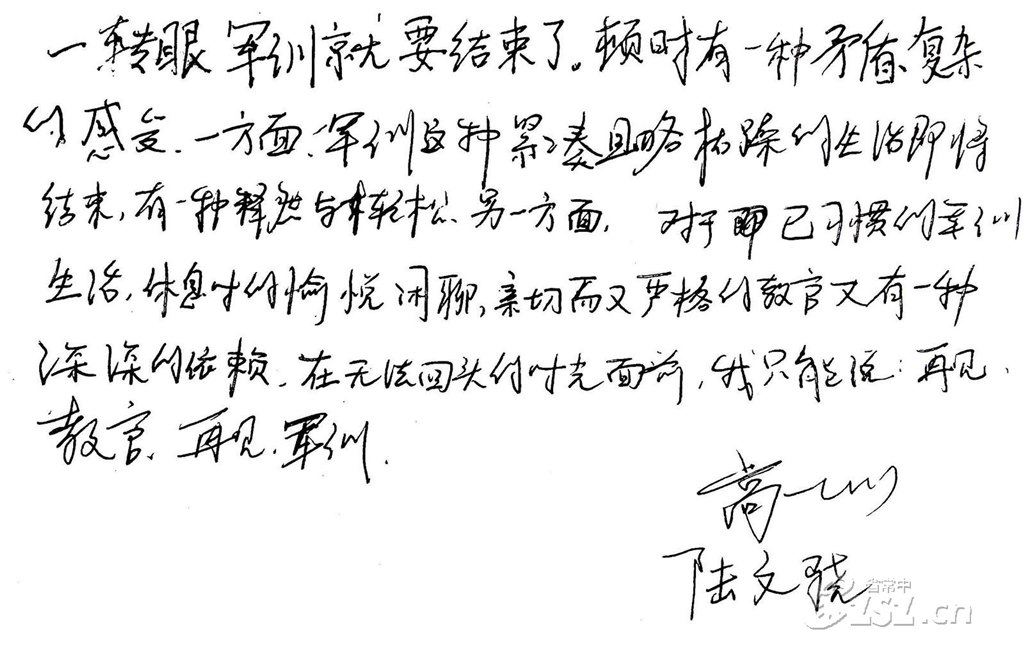 一转眼军训就要结束了。顿时有一种矛盾、复杂
的感受。一方面,军训这种累、凑且略枯燥的生活即将
结束,有一种释然与轻松。另一方面,对于已习惯的军训
生活,休息时的愉悦闲聊,亲切而又严格的教官又有一种
深深的依赖。在无法回头的时光面前,我只能说:再见,
教官,再见,军训。
高一
陆文骁
省常中